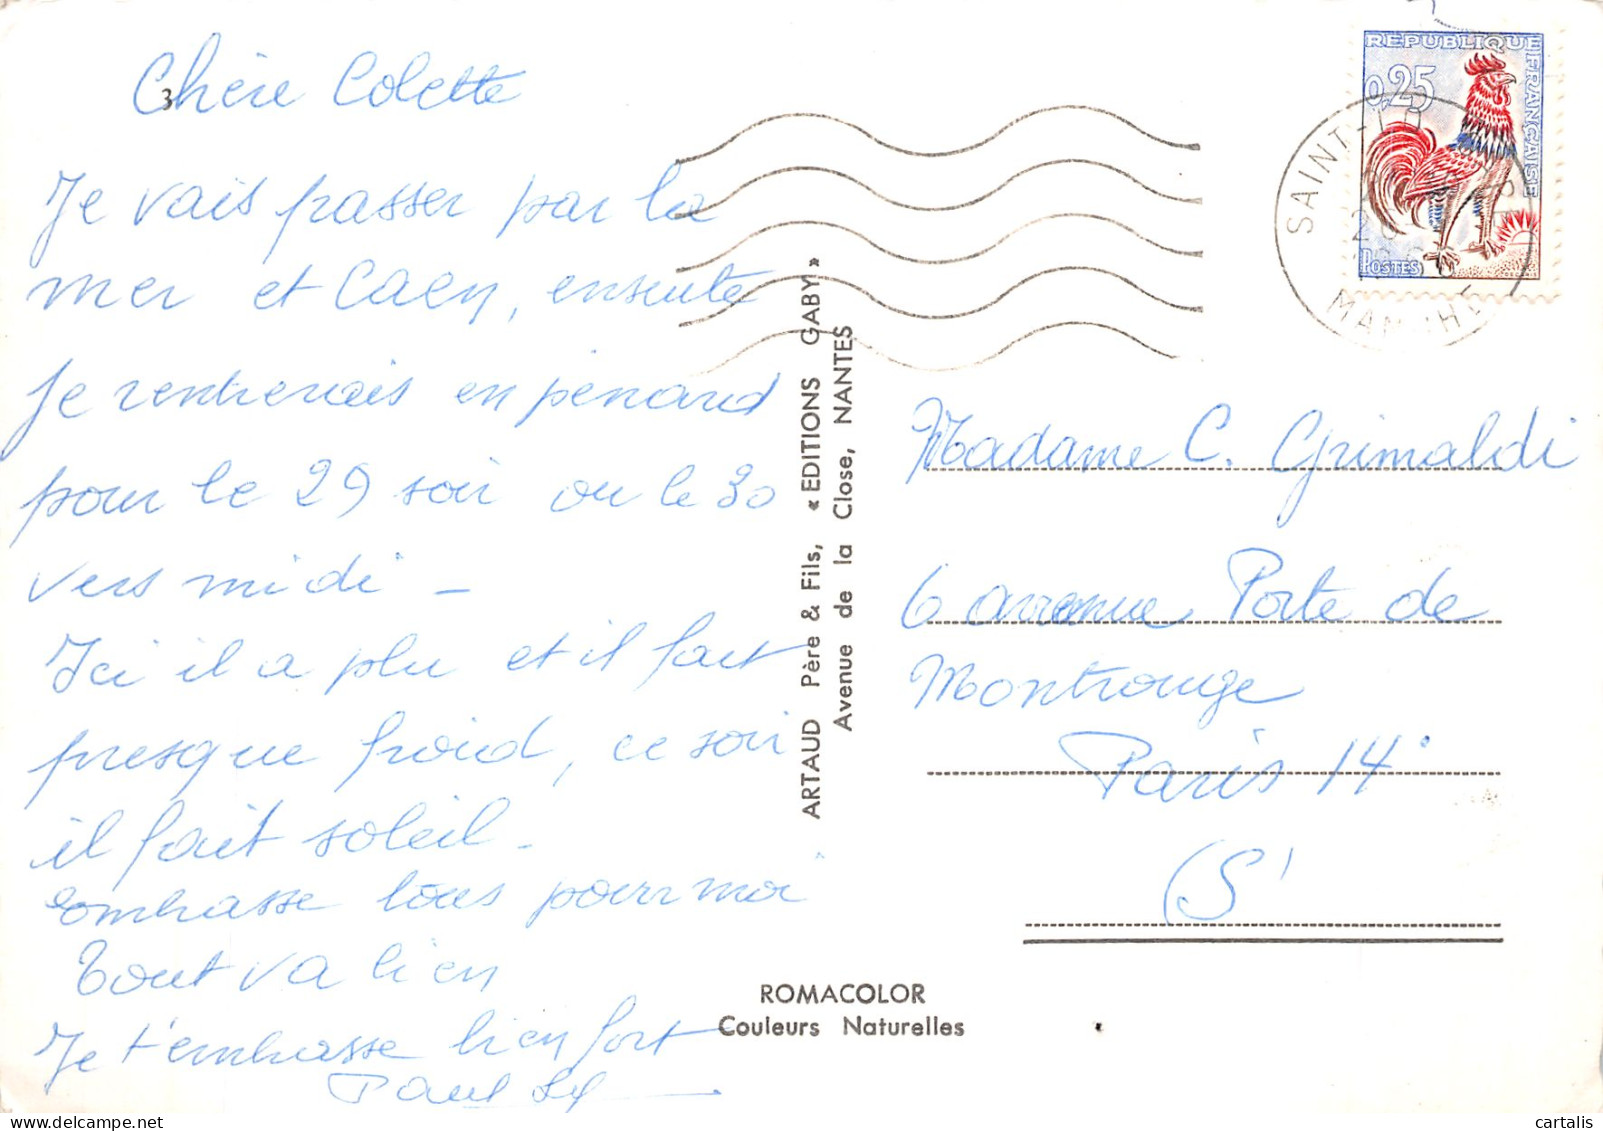 Chère Colette
3
Je vais passer par la
mer et Caen, ensuite
je rentrerais en pénard
pour le 29 soir ou le 30
vers midi -
Ici il a plu et il fait
presque froid, ce soir
il fait soleil -
embrasse tous pour moi
Tout va bien
Je t'embrasse bien fort
Paul
ARTAUD Père & Fils, « EDITIONS GABY »
Avenue de la Close, NANTES
REPUBLIQUE FRANÇAISE
0,25
POSTES
SAINT-LO
MANCHE
Madame C. Grimaldi
6 avenue Porte de
Montrouge
Paris 14°
(S')
ROMACOLOR
Couleurs Naturelles
cartalis | delcampe.net